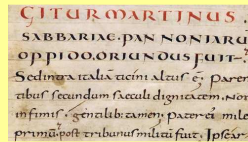 GITUR MARTINUS
SABBARIAE · PAN NONIARU
OPPIDO. ORIUNDUS FUIT·
Sedintra italia ticini altus ē; Paren
tibus secundum saeculi dignitatem. Non
infimis, gentilib; tamen; Pater ei mile
primū. post tribunus militū fuit, Ipse ar